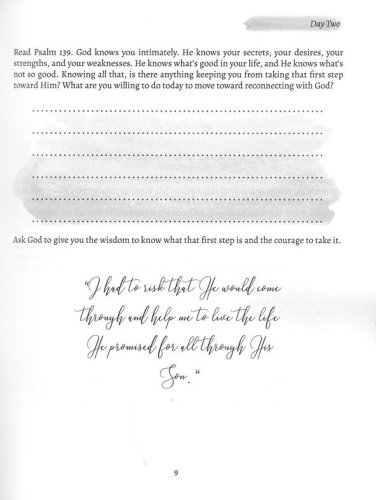 Day Two
Read Psalm 139. God knows you intimately. He knows your secrets, your desires, your
strengths, and your weaknesses. He knows what's good in your life, and He knows what's
not so good. Knowing all that, is there anything keeping you from taking that first step
toward Him? What are you willing to do today to move toward reconnecting with God?
Ask God to give you the wisdom to know what that first step is and the courage to take it.
"I had to risk that He would come
through and help me to live the life
He promised for all through His
Son."
9